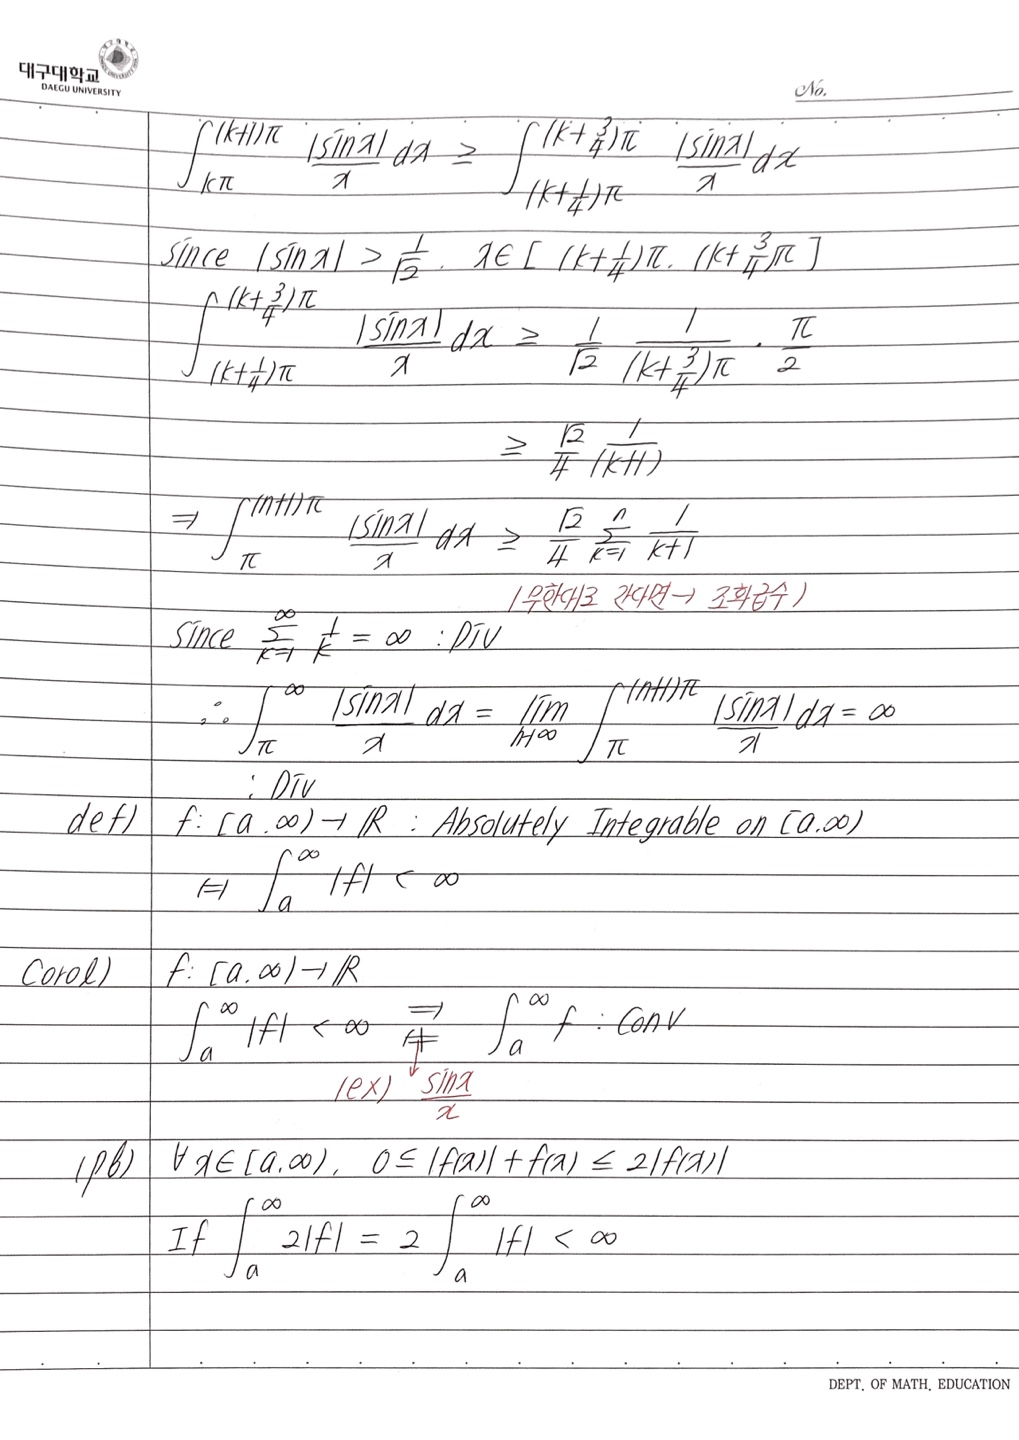 대구대학교
DAEGU UNIVERSITY
No.
∫_{kπ}^{(k+1)π} |sinx|/x dx ≥ ∫_{(k+1/4)π}^{(k+3/4)π} |sinx|/x dx
since |sinx| > 1/√2 . x∈[ (k+1/4)π. (k+3/4)π ]
∫_{(k+1/4)π}^{(k+3/4)π} |sinx|/x dx ≥ 1/√2 1/((k+3/4)π) · π/2
≥ √2/4 1/(k+1)
⇒ ∫_{π}^{(n+1)π} |sinx|/x dx ≥ √2/4 Σ_{k=1}^{n} 1/(k+1)
(무한대로 간다면→ 조화급수)
Since Σ_{k=1}^{∞} 1/k = ∞ : Div
∴ ∫_{π}^{∞} |sinx|/x dx = lim_{n→∞} ∫_{π}^{(n+1)π} |sinx|/x dx = ∞
: Div
def) f: [a.∞) → ℝ : Absolutely Integrable on [a.∞)
⇔ ∫_{a}^{∞} |f| < ∞
Corol) f: [a.∞) → ℝ
∫_{a}^{∞} |f| < ∞ ⇒ ⇍ ∫_{a}^{∞} f : Conv
(ex) sinx/x
(pb) ∀x∈[a.∞), 0 ≤ |f(x)| + f(x) ≤ 2|f(x)|
If ∫_{a}^{∞} 2|f| = 2 ∫_{a}^{∞} |f| < ∞
DEPT. OF MATH. EDUCATION